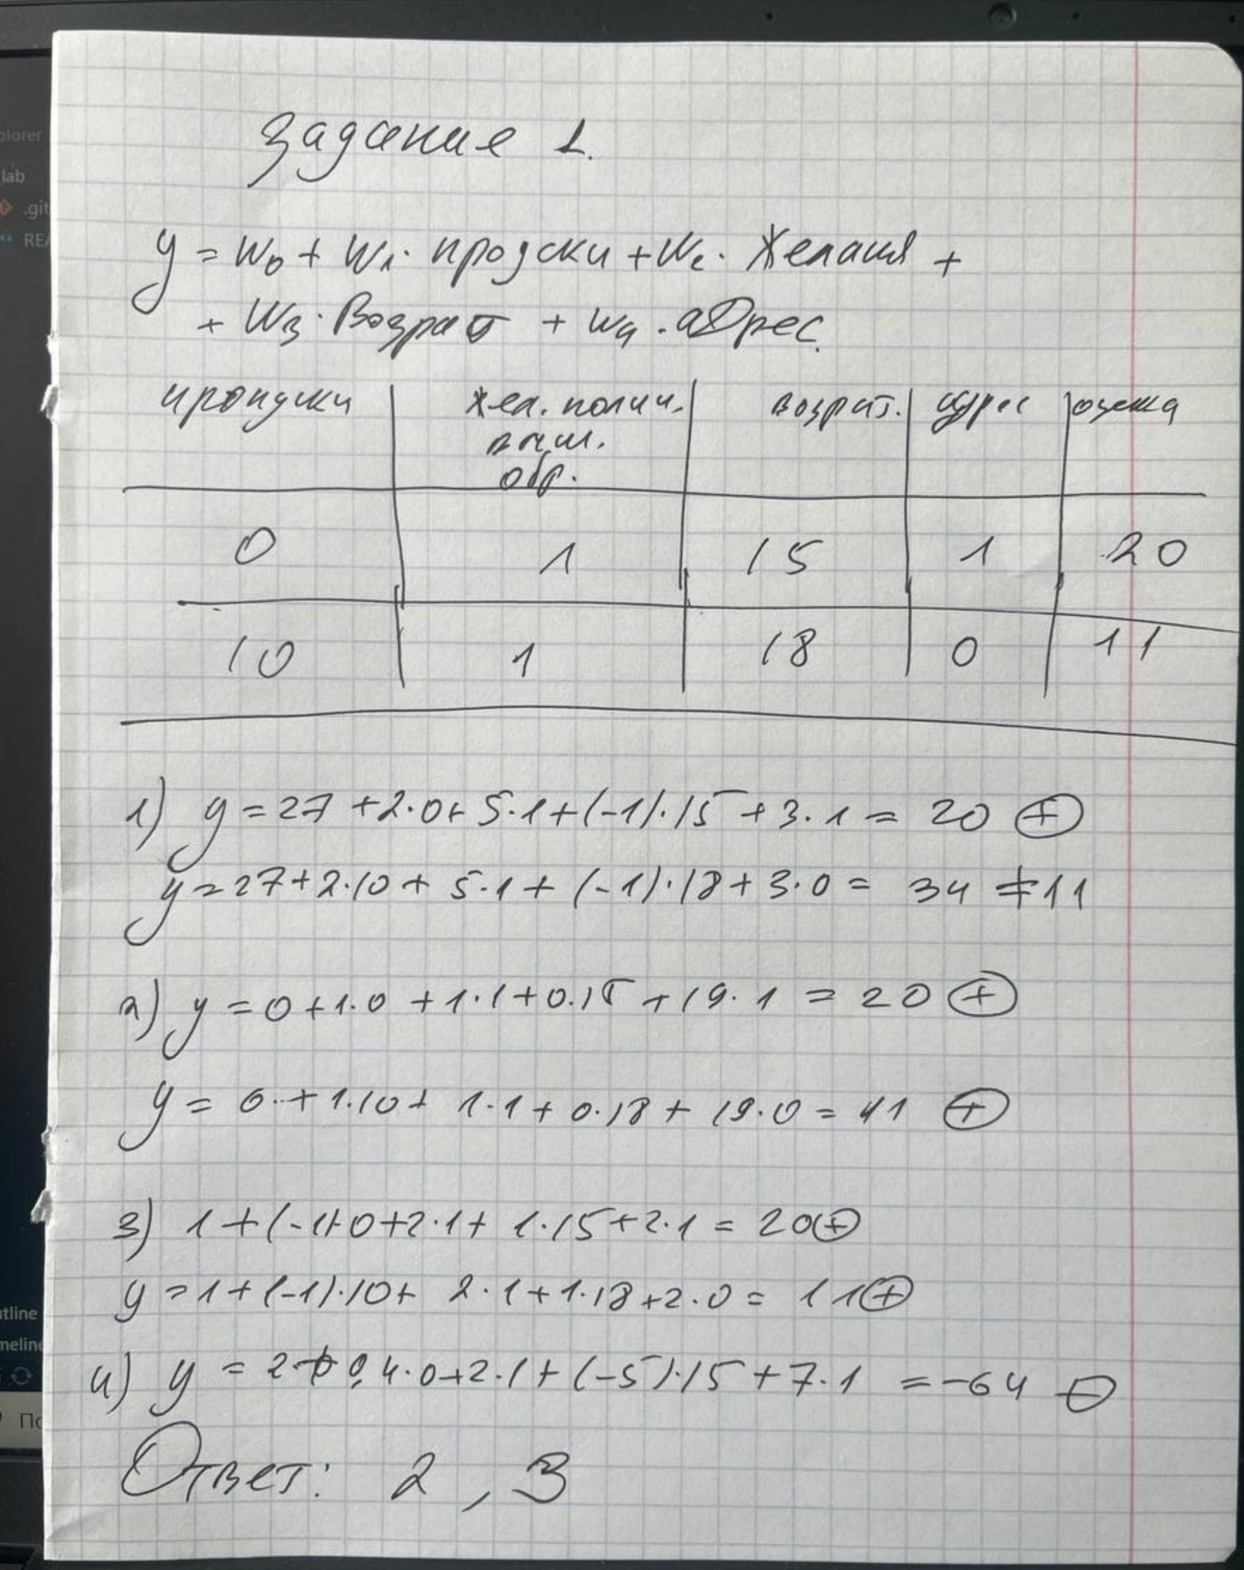 Задание 1.
y = w₀ + w₁ · пропуски + w₂ · Желания +
+ w₃ · Возраст + w₄ · адрес.
пропуски | жел. получ. | возраст. | адрес | оценка
выш.
обр.
0 | 1 | 15 | 1 | 20
10 | 1 | 18 | 0 | 11
1) y = 27 + 2·0 + 5·1 + (-1)·15 + 3·1 = 20 ⊕
y = 27 + 2·10 + 5·1 + (-1)·18 + 3·0 = 34 ≠ 11
2) y = 0 + 1·0 + 1·1 + 0·15 + 19·1 = 20 ⊕
y = 0 + 1·10 + 1·1 + 0·18 + 19·0 = 11 ⊕
3) 1 + (-1)·0 + 2·1 + 1·15 + 2·1 = 20 ⊕
y = 1 + (-1)·10 + 2·1 + 1·18 + 2·0 = 11 ⊕
4) y = 2 + 0,4·0 + 2·1 + (-5)·15 + 7·1 = -64 ⊖
Ответ: 2, 3
plorer
lab
.git
REA
utline
meline
По